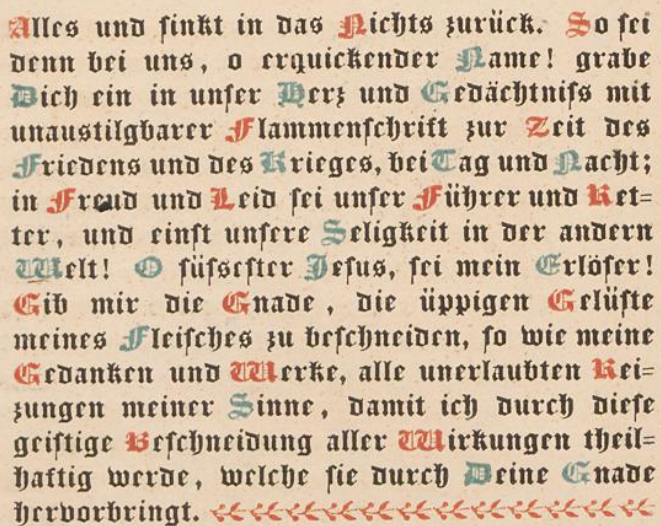 Alles und sinkt in das Nichts zurück. So sei
denn bei uns, o erquickender Name! grabe
Dich ein in unser Herz und Gedächtniss mit
unaustilgbarer Flammenschrift zur Zeit des
Friedens und des Krieges, bei Tag und Nacht;
in Freud und Leid sei unser Führer und Ret=
ter, und einst unsere Seligkeit in der andern
Welt! O süssester Jesus, sei mein Erlöser!
Gib mir die Gnade, die üppigen Gelüste
meines Fleisches zu beschneiden, so wie meine
Gedanken und Werke, alle unerlaubten Rei=
zungen meiner Sinne, damit ich durch diese
geistige Beschneidung aller Wirkungen theil=
haftig werde, welche sie durch Deine Gnade
hervorbringt.